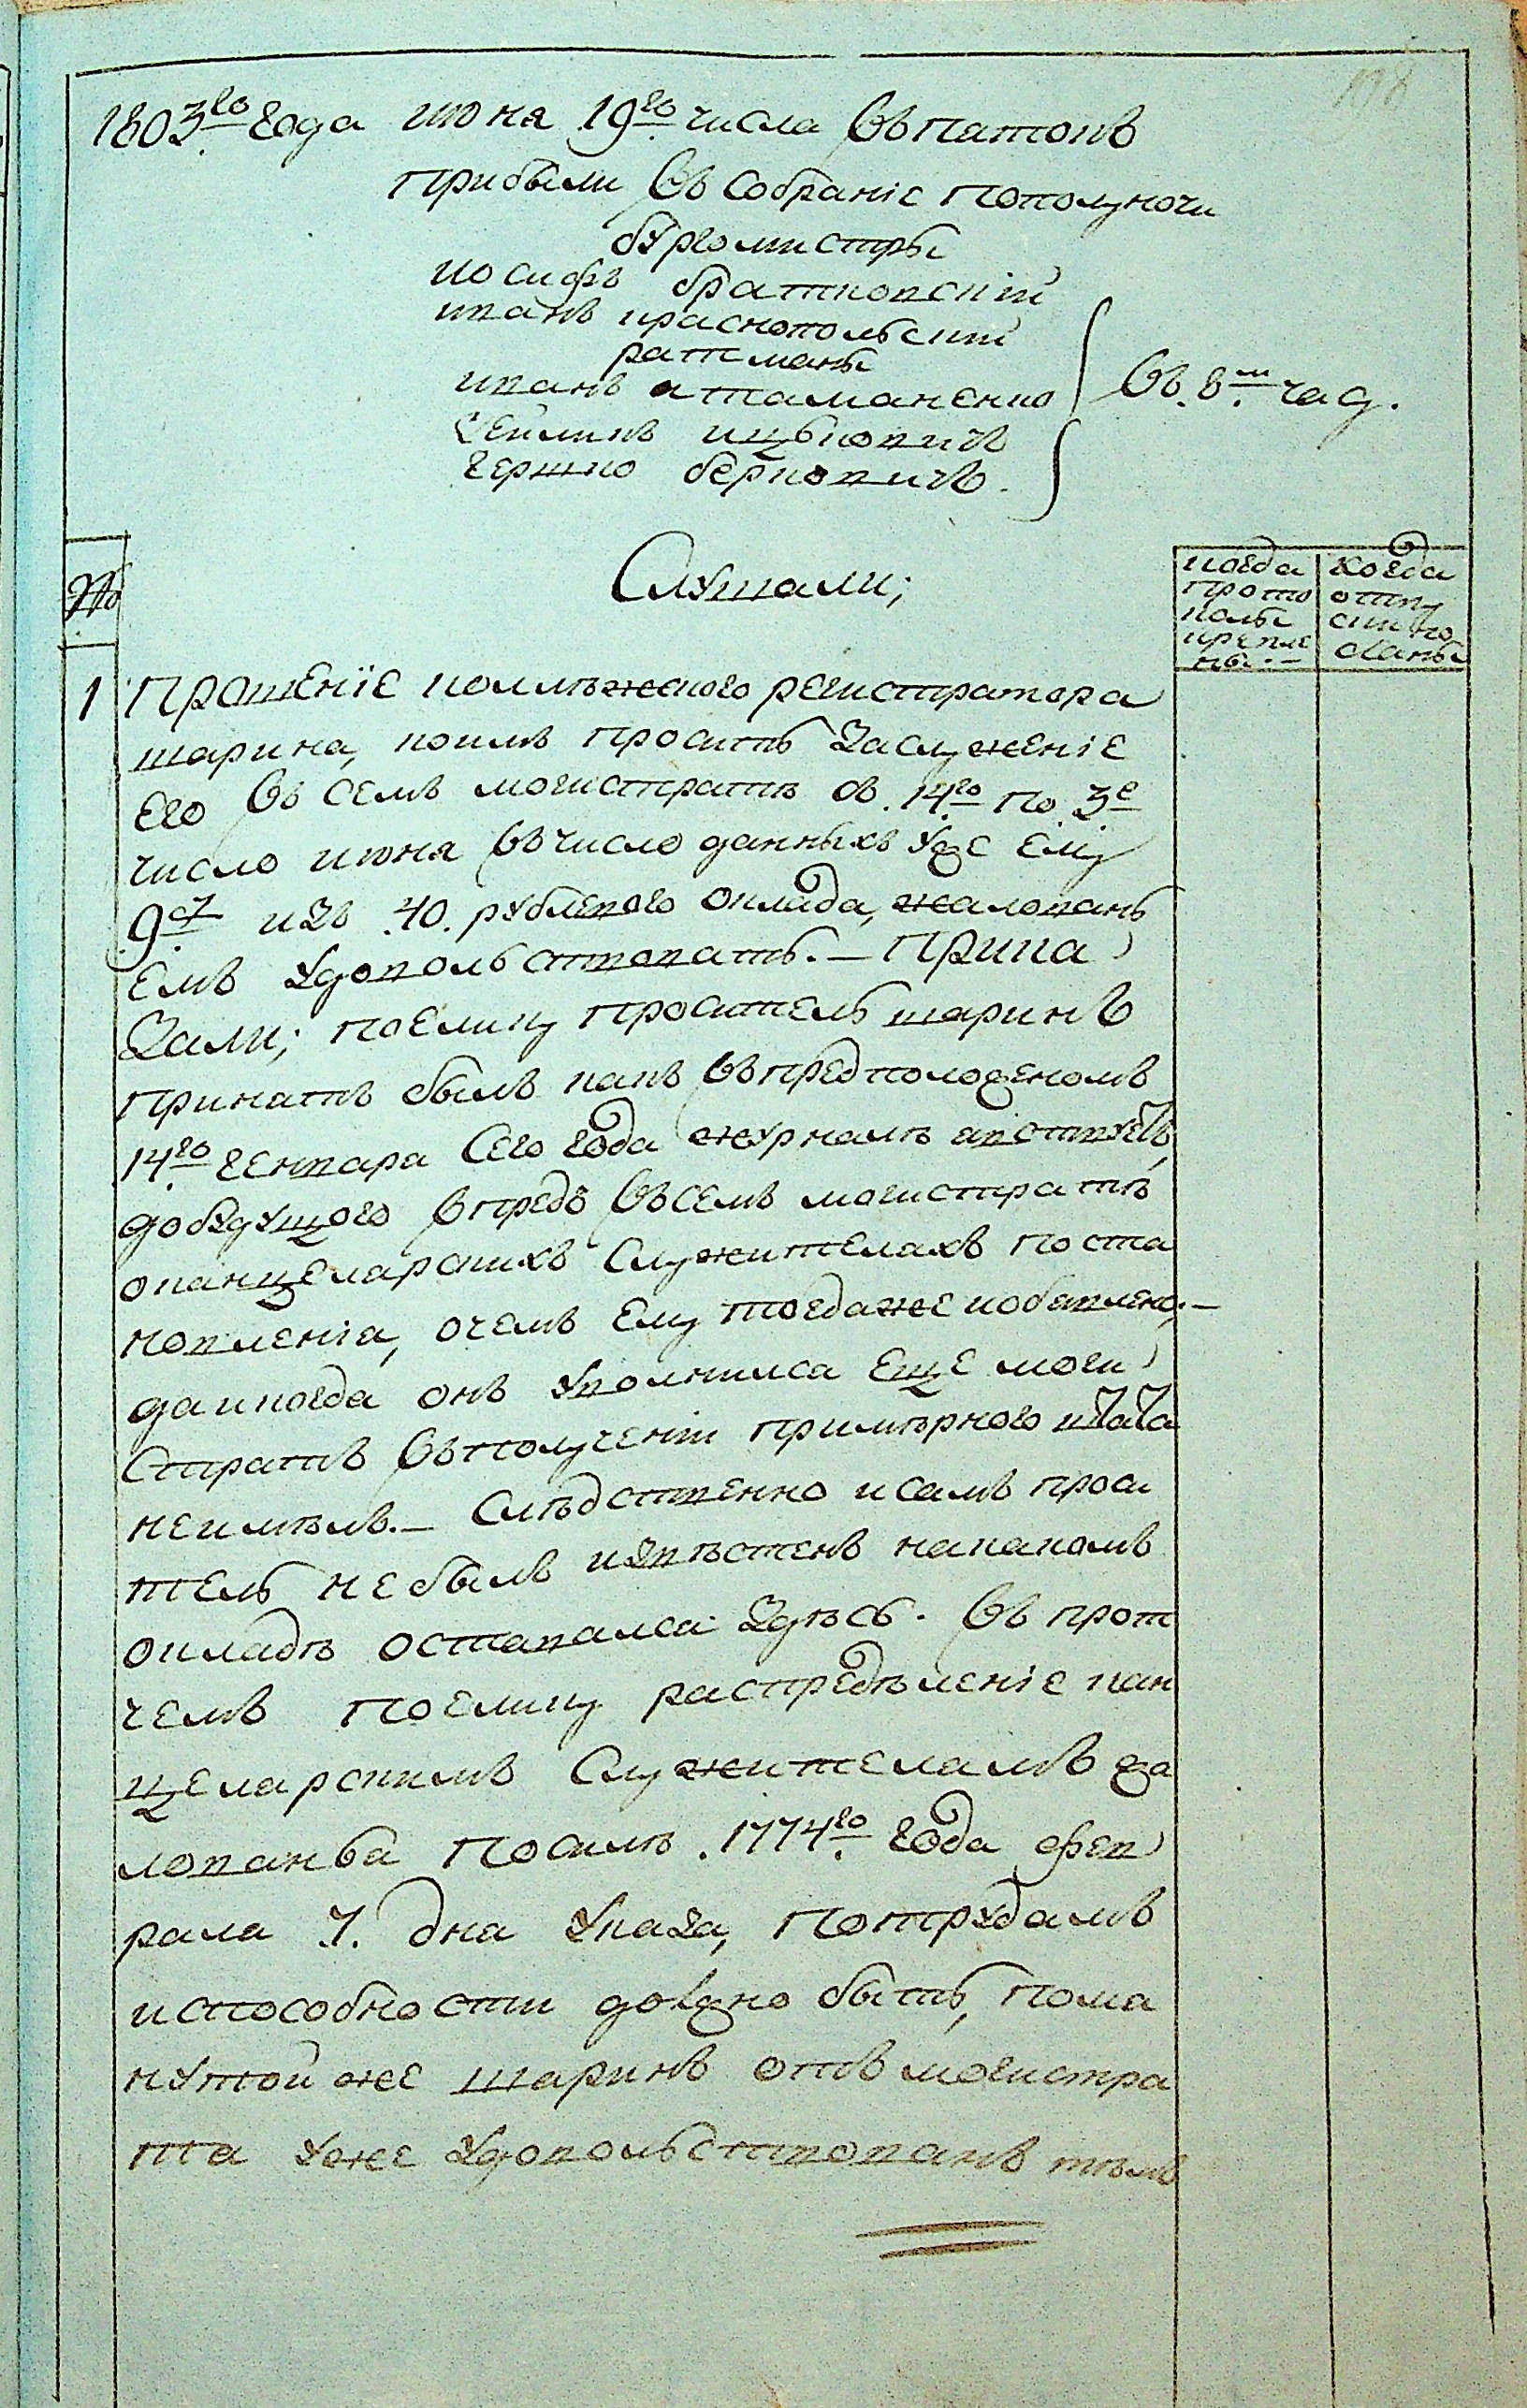 1803го года июня 19го числа Въ пятокъ
прибыли Въ Собраніе пополуночи
бургомистры
иосифъ братковскій
иванъ краснопольскій
ратманы
иванъ атаманенко
Въ 8м час.
хеймикъ ицковичъ
гершко берковичъ.
Слушали;
№
когда прото колы крепле ны. —
когда отпу ски по сланы
1 Прошеніе коллѣжского регистратора
шарина, коимъ проситъ Заслуженіе
Его Въ семъ магистратѣ съ 14го по 3е
число июня Въчисло данныхъ уже Ему
9ст изъ 40. рублевого оклада, жалованъ
Емъ Удовольствовать. — Прика
Зали; поелику проситель шаринъ
принятъ былъ какъ Въпредположеномъ
14го генваря Сего года журналѣ явствуетъ,
добудущого Впредъ Въсемъ магистратѣ
оканцелярскихъ Служителяхъ поста
новленія, очемъ Ему тогдаже иобявлено; —
даикогда онъ Уволнился Еще маги
Стратъ Въполученіи примѣрного штата
неимѣлъ. — Слѣдственно исамъ проси
тель небылъ извѣстенъ накакомъ
окладѣ оставался Здѣсь. Въ прот
чемъ поелику распредѣленіе кан
целярскимъ Служителямъ жа
лованья посилѣ 1774го года фев
раля 7. дня Указа, потрудамъ
испособности должно быть, помя
нутой же шаринъ отъ магистра
та уже Удовольствованъ тѣмъ